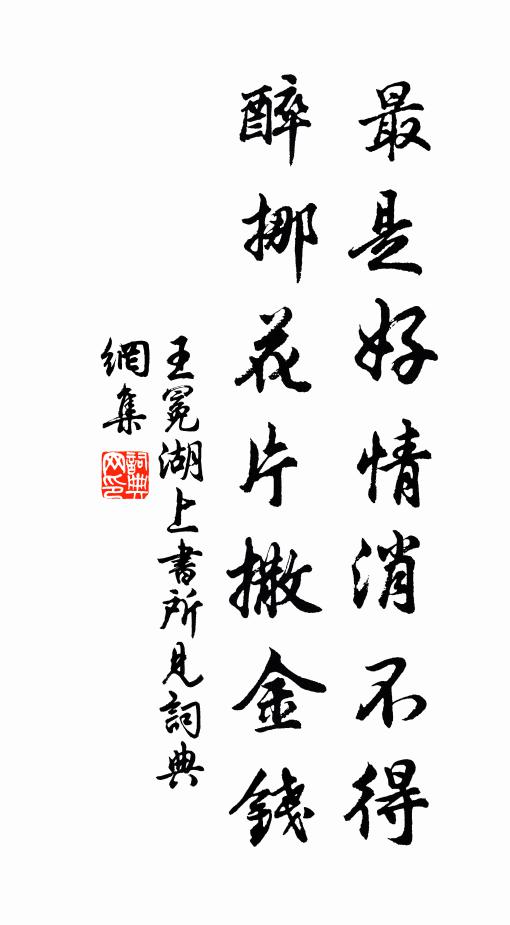 最是好情消不得
醉挪花片撒金錢
王冕湖上書所見詞典
網集
詞典網印